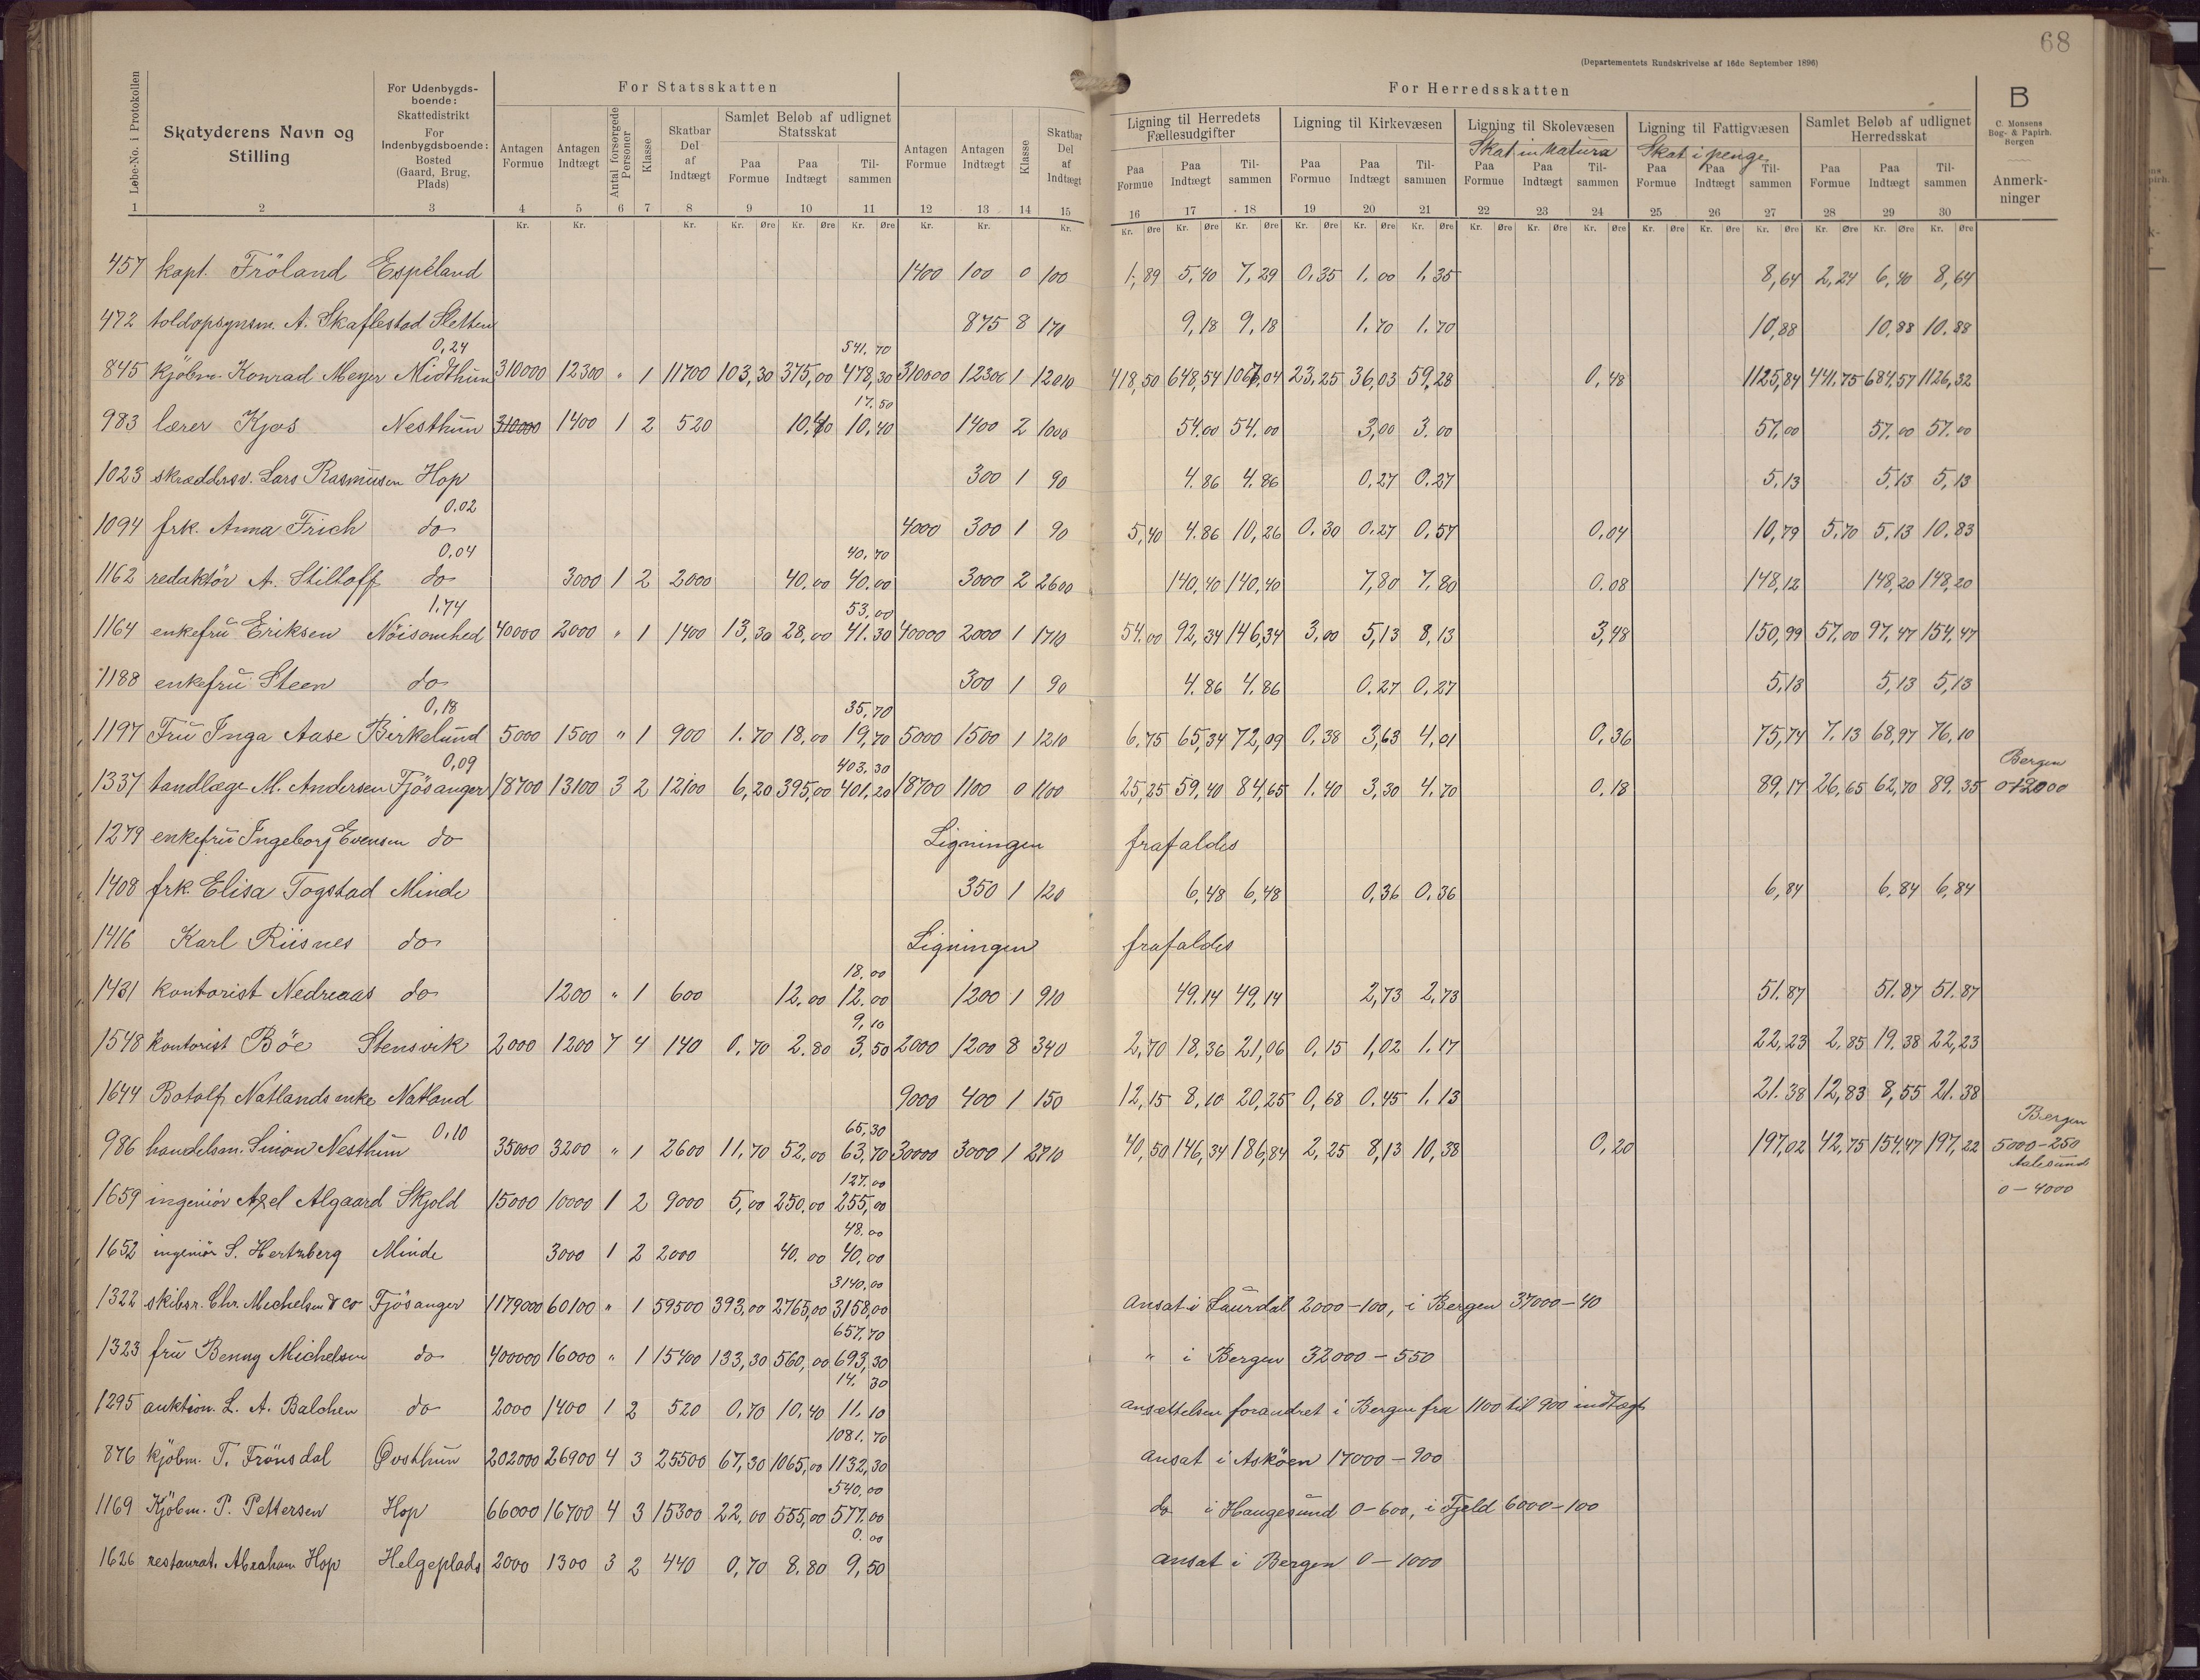 68
(Departementets Rundskrivelse af 16de September 1896)
For Statsskatten
For Herredsskatten
B
C. Monsens Bog- & Papirh. Bergen
Løbe-No. i Protokollen
Skatyderens Navn og Stilling
For Udenbygdsboende: Skattedistrikt For Indenbygdsboende: Bosted (Gaard, Brug, Plads)
Antagen Formue
Antagen Indtægt
Antal forsørgede Personer
Klasse
Skatbar Del af Indtægt
Samlet Beløb af udlignet Statsskat
Paa Formue Paa Indtægt Tilsammen
Antagen Formue
Antagen Indtægt
Klasse
Skatbar Del af Indtægt
Ligning til Herredets Fællesudgifter
Paa Formue Paa Indtægt Tilsammen
Ligning til Kirkevæsen
Paa Formue Paa Indtægt Tilsammen
Ligning til Skolevæsen
Skat in natura
Paa Formue Paa Indtægt Tilsammen
Ligning til Fattigvæsen
Skat i penge
Paa Formue Paa Indtægt Tilsammen
Samlet Beløb af udlignet Herredsskat
Paa Formue Paa Indtægt Tilsammen
Anmerkninger
1 2 3 4 5 6 7 8 9 10 11 12 13 14 15 16 17 18 19 20 21 22 23 24 25 26 27 28 29 30
Kr. Kr. Kr. Kr. Øre Kr. Øre Kr. Øre Kr. Kr. Kr. Kr. Øre Kr. Øre Kr. Øre Kr. Øre Kr. Øre Kr. Øre Kr. Øre Kr. Øre Kr. Øre Kr. Øre Kr. Øre Kr. Øre Kr. Øre Kr. Øre Kr. Øre
457 kapt. Fröland Espeland 1400 100 0 100 1,89 5,40 7,29 0,35 1.00 1,35 8,64 2,24 6,40 8,64
472 toldopsynsm. A. Skaflestad Sletten 875 8 170 9,18 9,18 1.70 1.70 10,88 10,88 10.88
0,24 541.70
845 kjöbm. Konrad Meyer Midthun 310000 12300 " 1 11700 103,30 375,00 478,30 310000 12300 1 12010 418,50 648,54 1067,04 23,25 36,03 59,28 0,48 1125,84 441,75 684,57 1126,32
17.50
983 lærer Kjos Nesthun 310000 1400 1 2 520 10.40 10,40 1400 2 1000 54.00 54.00 3,00 3.00 57,00 57.00 57.00
1023 skræddersv. Lars Rasmusen Hop 300 1 90 4.86 4.86 0,27 0.27 5.13 5,13 5,13
0.02
1094 frk. Anna Frich do 4000 300 1 90 5,40 4.86 10,26 0.30 0.27 0,57 0,04 10,79 5,70 5,13 10,83
0,04 40,70
1162 redaktör A. Stiltoff do 3000 1 2 2000 40,00 40.00 3000 2 2600 140,40 140,40 7,80 7.80 0.08 148,12 148,20 148,20
1.74 53,00
1164 enkefru Eriksen Nöisomhed 40000 2000 " 1 1400 13,30 28,00 41.30 40000 2000 1 1710 54.00 92,34 146,34 3,00 5,13 8,13 3,48 150,99 57,00 97,47 154,47
1188 enkefru Steen do 300 1 90 4.86 4.86 0.27 0,27 5,13 5,13 5,13
0,18 35,70
1197 Fru Inga Aase Birkelund 5000 1500 " 1 900 1.70 18,00 19,70 5000 1500 1 1210 6,75 65,34 72,09 0,38 3,63 4,01 0,36 75,74 7,13 68,97 76,10
0,09 403,30 Bergen
1337 tandlæge M. Andersen Fjösanger 18700 13100 3 2 12100 6,20 395,00 401,20 18700 1100 0 1100 25,25 59,40 84,65 1.40 3,30 4.70 0.18 89,17 26,65 62,70 89,35 0-12000
1279 enkefru Ingeborg Evensen do Ligningen frafaldes
1408 frk. Elisa Togstad Minde 350 1 120 6,48 6,48 0,36 0.36 6,84 6.84 6,84
1416 Karl Riisnes do Ligningen frafaldes
18.00
1431 kontorist Nedreaas do 1200 " 1 600 12.00 12.00 1200 1 910 49.14 49,14 2,73 2,73 51.87 51.87 51.87
9,10
1548 kontorist Böe Stensvik 2000 1200 7 4 140 0.70 2.80 3,50 2000 1200 8 340 2,70 18,36 21,06 0,15 1,02 1.17 22,23 2.85 19.38 22,23
1644 Botolf Natlands enke Natland 9000 400 1 150 12,15 8,10 20,25 0,68 0.45 1.13 21.38 12,83 8,55 21.38
0,10 65,30 Bergen
986 handelsm. Simon Nesthun 35000 3200 " 1 2600 11,70 52,00 63,70 30000 3000 1 2710 40,50 146,34 186,84 2,25 8,13 10,38 0,20 197,02 42,75 154,47 197,22 5000-250
127.00 Aalesund
1659 ingeniör Axel Algaard Skjold 15000 10000 1 2 9000 5,00 250.00 255,00 0-4000
48.00
1652 ingeniör S. Hertzberg Minde 3000 1 2 2000 40.00 40,00
3140.00
1322 skibsr. Chr. Michelsen & co Fjösanger 1179000 60100 " 1 59500 393,00 2765,00 3158,00 ansat i Laurdal 2000-100, i Bergen 37000-40
657.70
1323 fru Benny Michelsen do 400000 16000 " 1 15400 133,30 560,00 693,30 " i Bergen 32000-550
14.30
1295 auktion. L. A. Balchen do 2000 1400 1 2 520 0,70 10,40 11.10 ansættelsen forandret i Bergen fra 1100 til 900 indtægt
1081.70
876 kjöbm. T. Frönsdal Øvsthun 202000 26900 4 3 25500 67,30 1065,00 1132,30 ansat i Asköen 17000-900
540.00
1169 Kjöbm. P. Pettersen Hop 66000 16700 4 3 15300 22.00 555,00 577.00 do i Haugesund 0-600, i Fjeld 6000-100
0.00
1626 restaurat. Abraham Hop Helgeplads 2000 1300 3 2 440 0,70 8.80 9,50 ansat i Bergen 0-1000